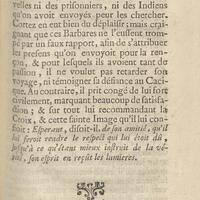 velles ni des prisonniers, ni des Indiens
qu'on avoit envoyés pour les chercher.
Cortez en eut bien du déplaisir; mais crai-
gnant que ces Barbares ne l'eussent trom-
pé par un faux rapport, afin de s'attribuer
les presens qu'on envoyoit pour la ran-
çon, & pour lesquels ils avoient tant de
passion, il ne voulut pas retarder son
voyage, ni témoigner sa défiance au Caci-
que. Au contraire, il prit congé de lui fort
civilement, marquant beaucoup de satisfa-
ction; & sur tout lui recommandant la
Croix, & cette sainte Image qu'il lui con-
fioit: Esperant, disoit-il, de son amitié, qu'il
lui feroit rendre le respect qui lui étoit dû,
jusqu'à ce qu'étant mieux instruit de la vé-
rité, son esprit en reçût les lumieres.